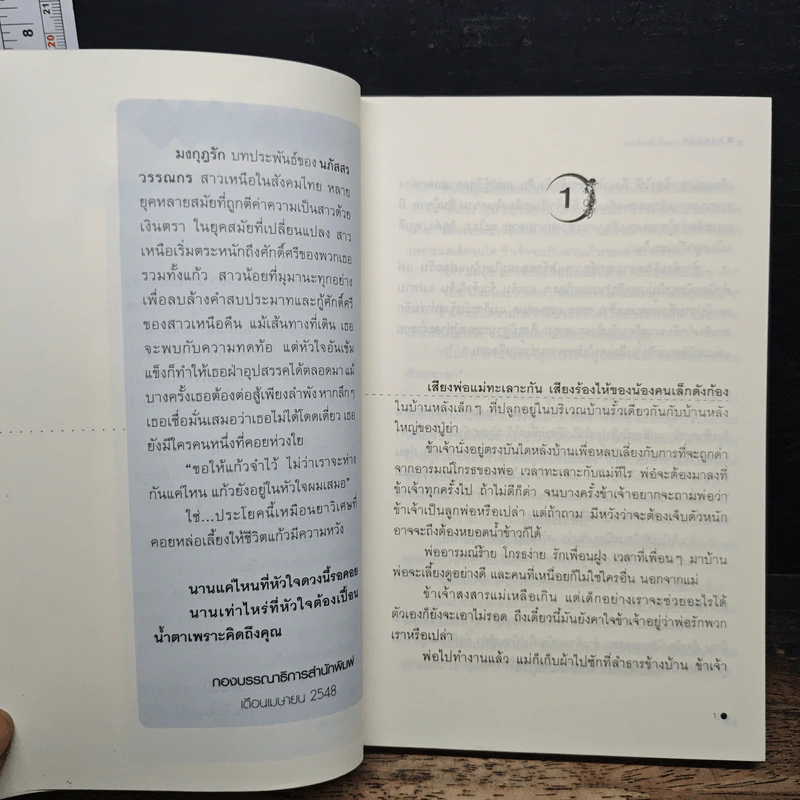 8
20
21
มงกุฎรัก บทประพันธ์ของ นภัสสร
วรรณกร สาวเหนือในสังคมไทย หลาย
ยุคหลายสมัยที่ถูกตีค่าความเป็นสาวด้วย
เงินตรา ในยุคสมัยที่เปลี่ยนแปลง สาว
เหนือเริ่มตระหนักถึงศักดิ์ศรีของพวกเธอ
รวมทั้งแก้ว สาวน้อยที่มุมานะทุกอย่าง
เพื่อลบล้างคำสบประมาทและกู้ศักดิ์ศรี
ของสาวเหนือคืน แม้เส้นทางที่เดิน เธอ
จะพบกับความทดท้อ แต่หัวใจอันเข้ม
แข็งก็ทำให้เธอฝ่าอุปสรรคได้ตลอดมา แม้
บางครั้งเธอต้องต่อสู้เพียงลำพัง หากลึกๆ
เธอเชื่อมั่นเสมอว่าเธอไม่ได้โดดเดี่ยว เธอ
ยังมีใครคนหนึ่งที่คอยห่วงใย
“ขอให้แก้วจำไว้ ไม่ว่าเราจะห่าง
กันแค่ไหน แก้วยังอยู่ในหัวใจผมเสมอ”
ใช่...ประโยคนี้เหมือนยาวิเศษที่
คอยหล่อเลี้ยงให้ชีวิตแก้วมีความหวัง
นานแค่ไหนที่หัวใจดวงนี้รอคอย
นานเท่าไหร่ที่หัวใจต้องเปื้อน
น้ำตาเพราะคิดถึงคุณ
กองบรรณาธิการสำนักพิมพ์
เดือนเมษายน 2548
1
เสียงพ่อแม่ทะเลาะกัน เสียงร้องไห้ของน้องคนเล็กดังก้อง
ในบ้านหลังเล็กๆ ที่ปลูกอยู่ในบริเวณบ้านรั้วเดียวกันกับบ้านหลัง
ใหญ่ของปู่ย่า
ข้าเจ้านั่งอยู่ตรงบันไดหลังบ้านเพื่อหลบเลี่ยงกับการที่จะถูกด่า
จากอารมณ์โกรธของพ่อ เวลาทะเลาะกับแม่ทีไร พ่อจะต้องมาลงที่
ข้าเจ้าทุกครั้งไป ถ้าไม่ตีก็ด่า จนบางครั้งข้าเจ้าอยากจะถามพ่อว่า
ข้าเจ้าเป็นลูกพ่อหรือเปล่า แต่ถ้าถาม มีหวังว่าจะต้องเจ็บตัวหนัก
อาจจะถึงต้องหยอดน้ำข้าวก็ได้
พ่ออารมณ์ร้าย โกรธง่าย รักเพื่อนฝูง เวลาที่เพื่อนๆ มาบ้าน
พ่อจะเลี้ยงดูอย่างดี และคนที่เหนื่อยก็ไม่ใช่ใครอื่น นอกจากแม่
ข้าเจ้าสงสารแม่เหลือเกิน แต่เด็กอย่างเราจะช่วยอะไรได้
ตัวเองก็ยังจะเอาไม่รอด ถึงเดี๋ยวนี้มันยังคาใจข้าเจ้าอยู่ว่าพ่อรักพวก
เราหรือเปล่า
พ่อไปทำงานแล้ว แม่ก็เก็บผ้าไปซักที่ลำธารข้างบ้าน ข้าเจ้า
1